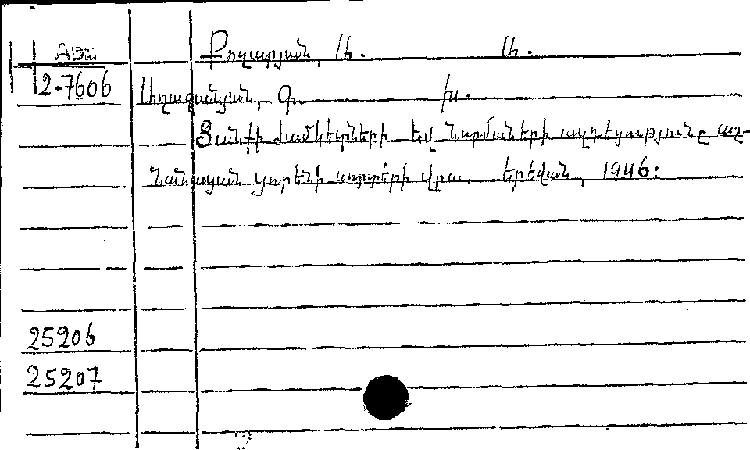 Քոչարյան, Ա.
2-7606 Աղաջանյան, Գ. խ.
Ցանքի ժամկետների եվ նորմաների ազդեցությունը աշ-
նանացան ցորենի բերքի վրա. Երեվան, 1946:
25206
25207